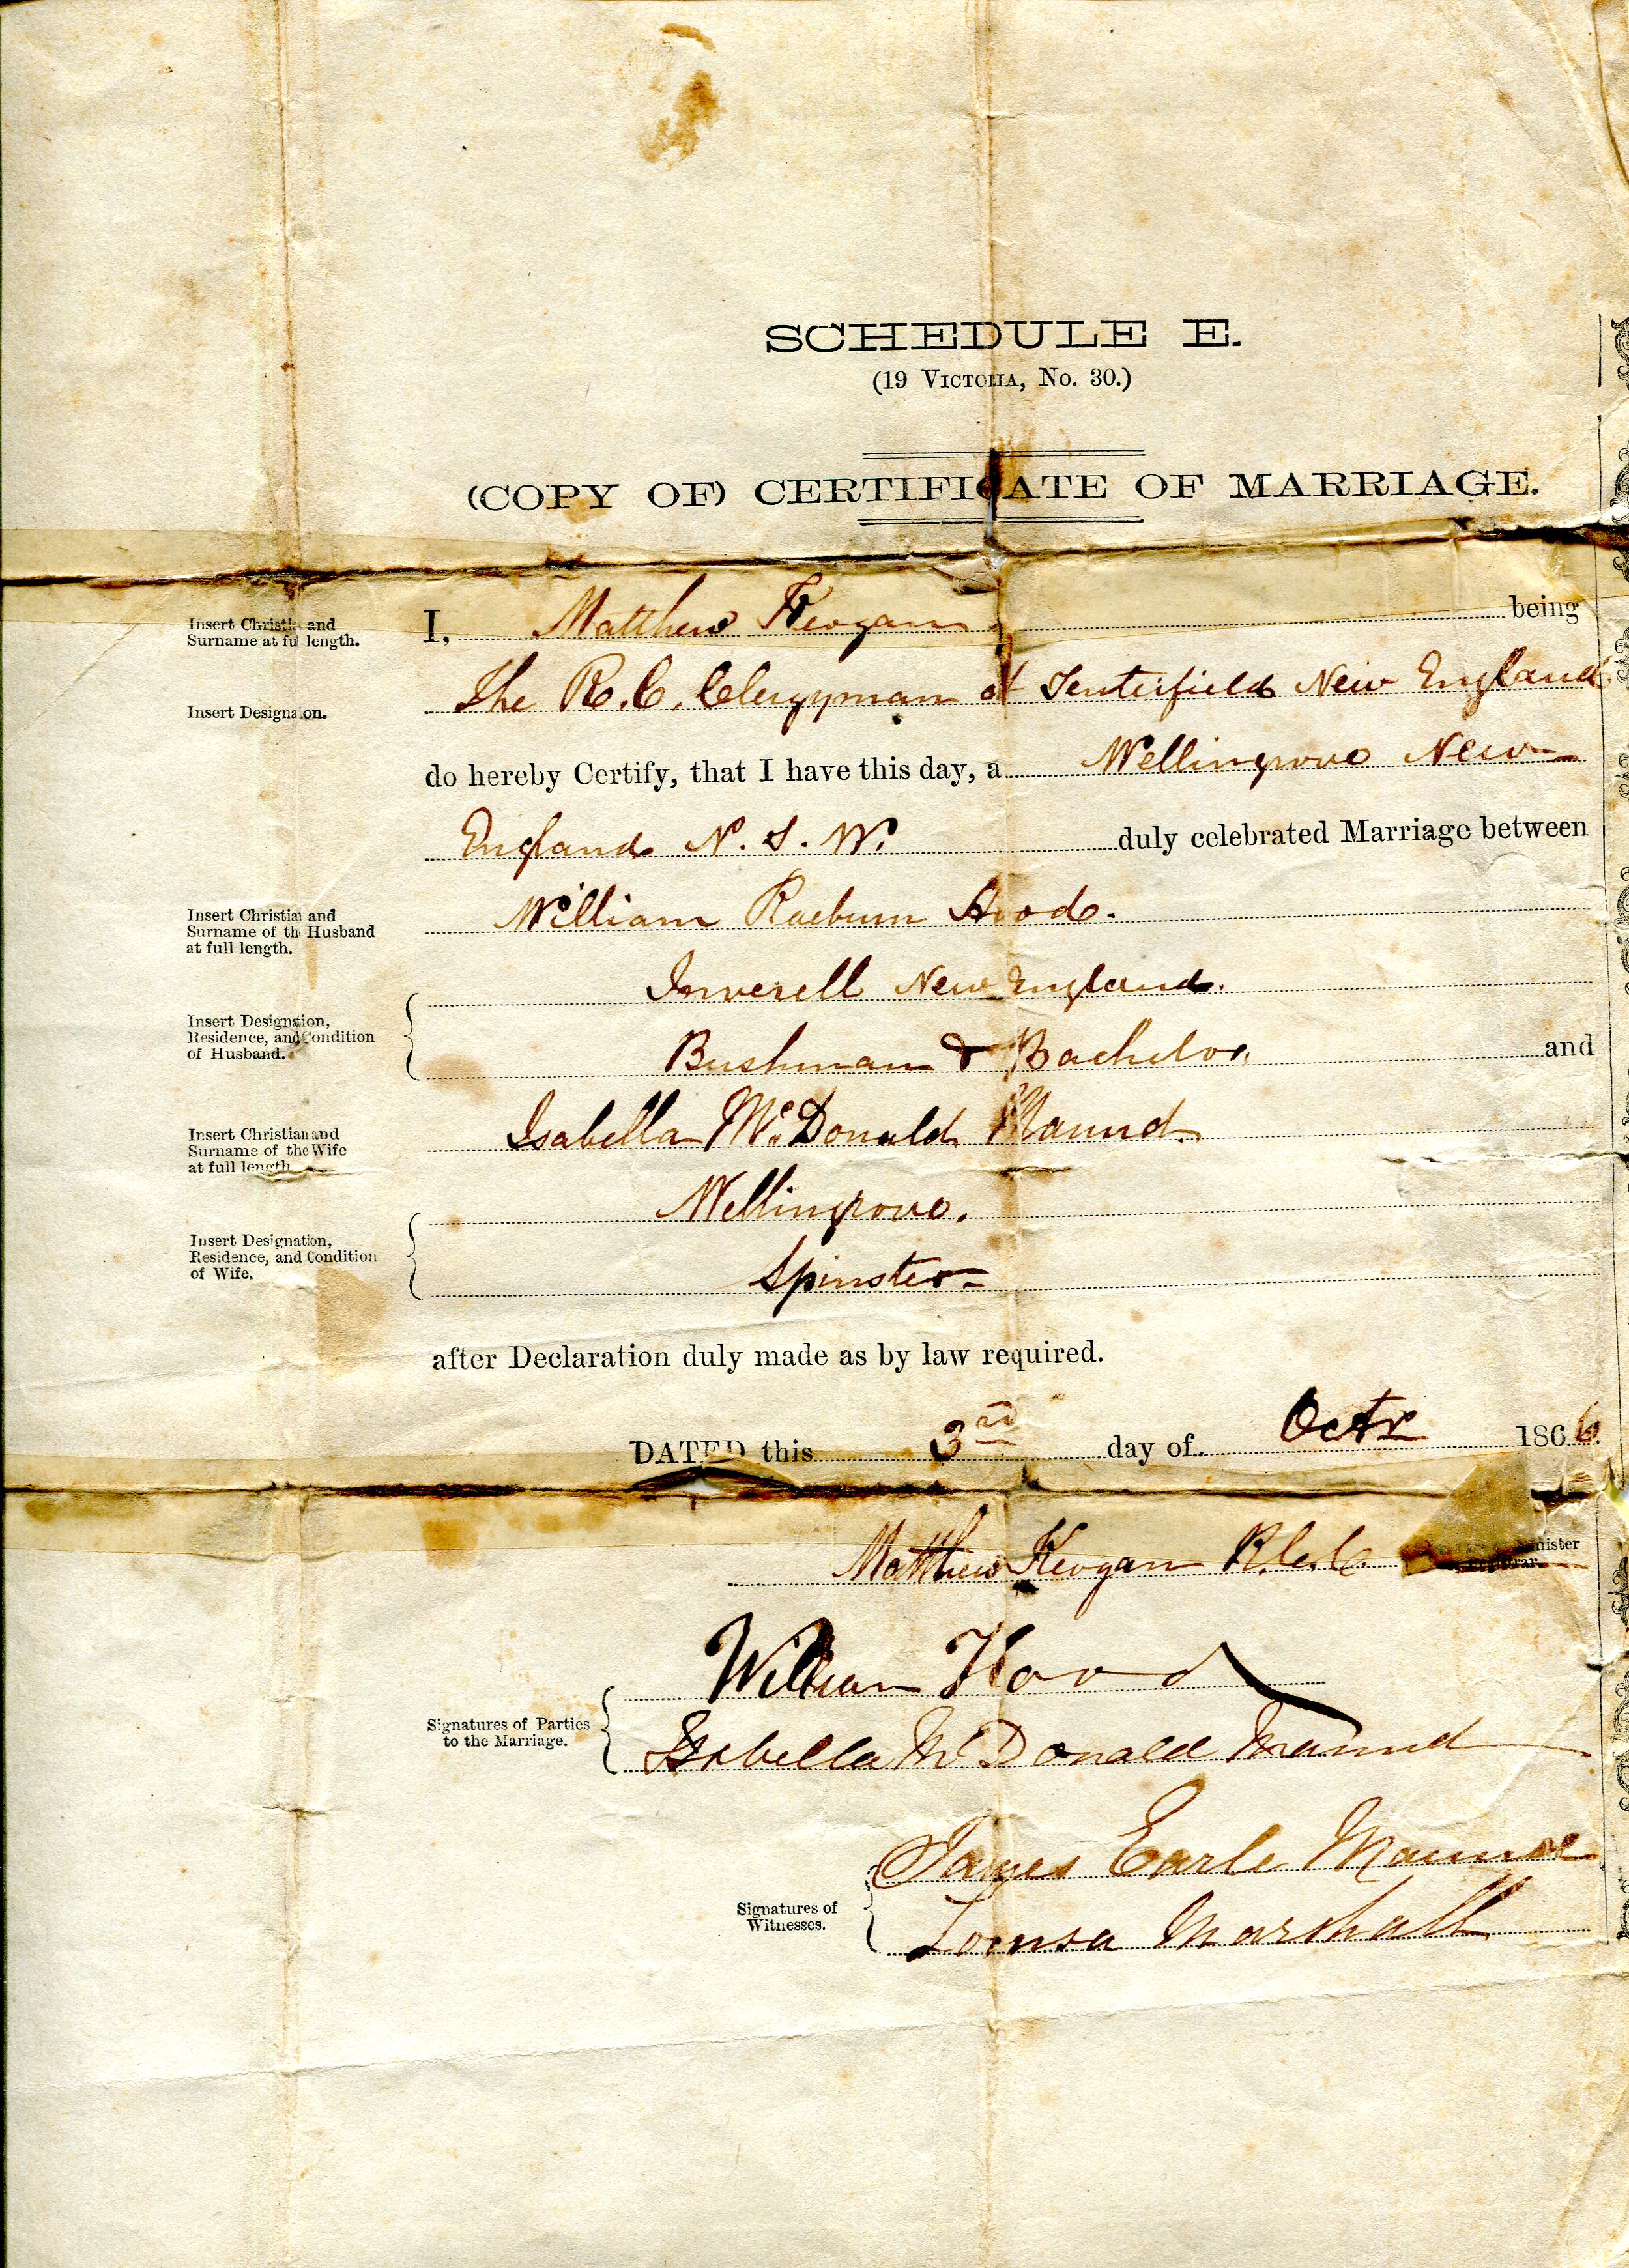 SCHEDULE E.
(19 VICTORIA, No. 30.)
(COPY OF) CERTIFICATE OF MARRIAGE.
Insert Christian and
Surname at full length.
I, Matthew Keogan being
Insert Designation.
The R.C. Clergyman of Tenterfield New England
do hereby Certify, that I have this day, a Wellingrove New
England N.S.W. duly celebrated Marriage between
Insert Christian and
Surname of the Husband
at full length.
William Raeburn Hood.
Inverell New England.
Insert Designation,
Residence, and Condition
of Husband.
Bushman & Bachelor. and
Insert Christian and
Surname of the Wife
at full length
Isabella McDonald Maund.
Wellingrove.
Insert Designation,
Residence, and Condition
of Wife.
Spinster
after Declaration duly made as by law required.
DATED this 3rd day of Octr 1866.
Matthew Keogan R.C.C.
William Hood
Signatures of Parties
to the Marriage.
Isabella McDonald Maund
James Earle
Signatures of
Witnesses.
Louisa Marshall